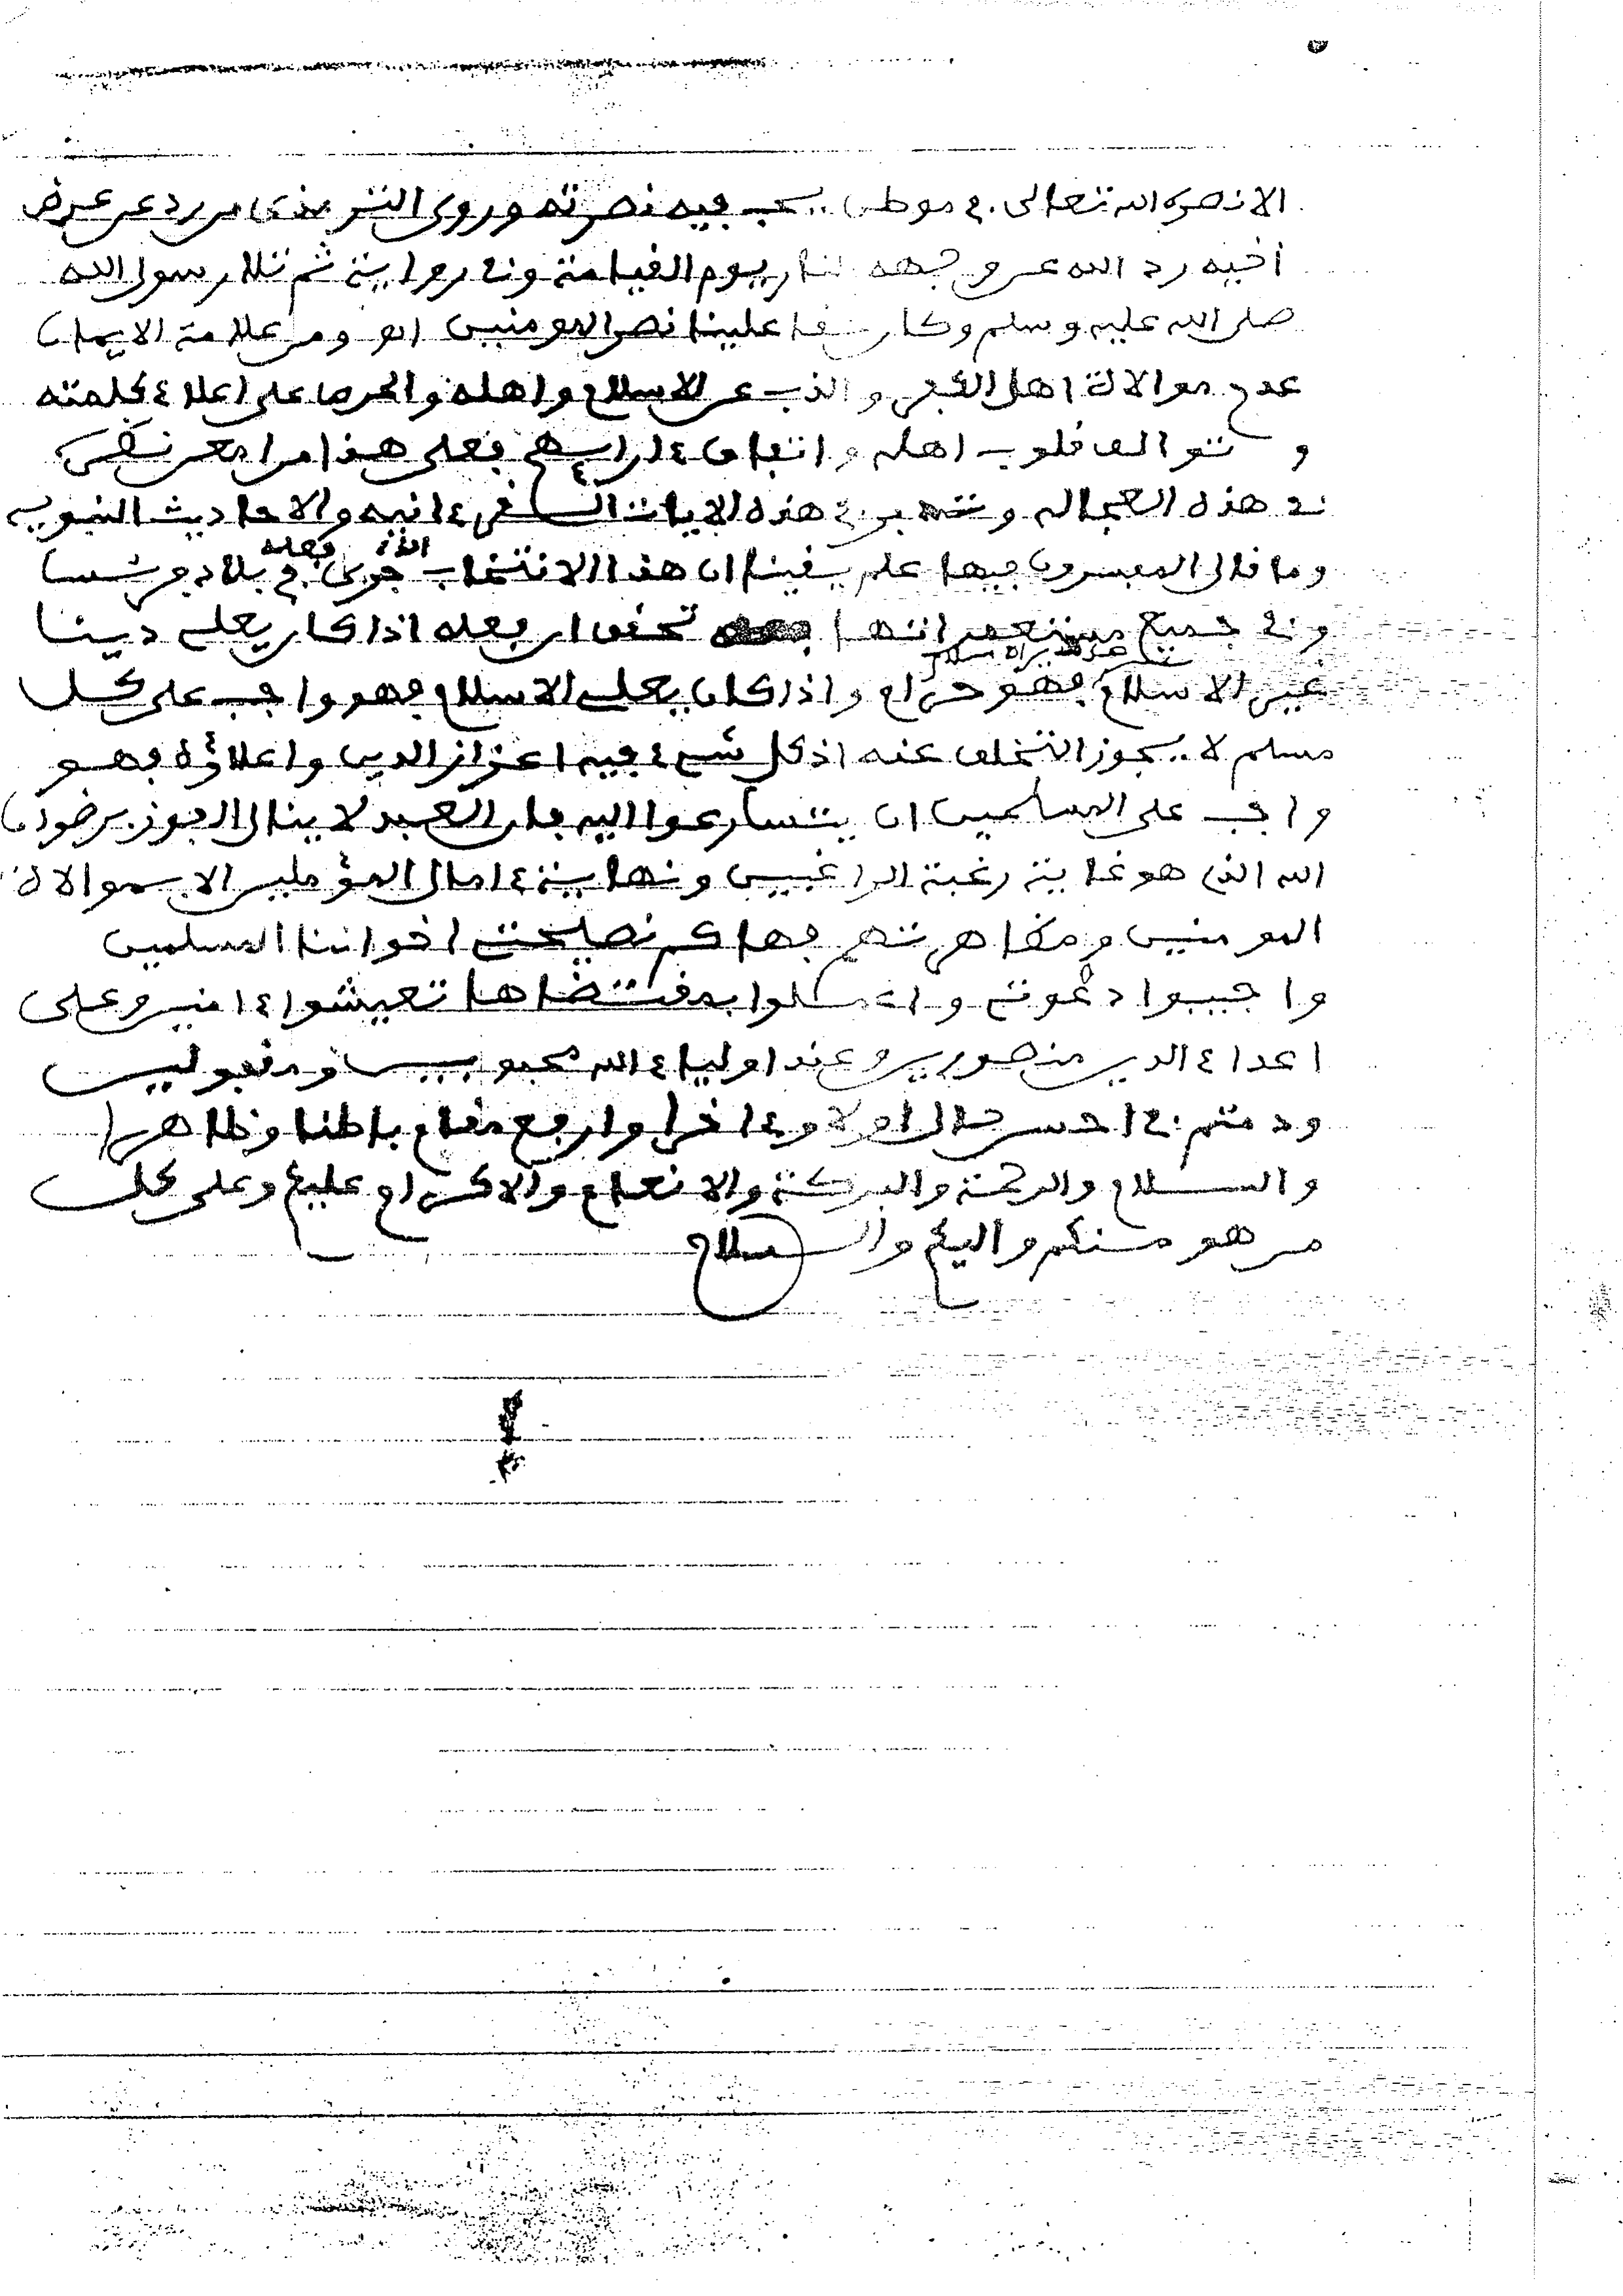 الا نصره الله تعالى في موطن يحب فيه نصرته وروى الترمذي من رد عن عرض
أخيه رد الله عن وجهه النار يوم القيامة وفي رواية ثم تلا رسول الله
صلى الله عليه وسلم وكان حقا علينا نصر المومنين اهـ ومن علامة الايمان
عدم موالاة اهل الكفر والذب عن الاسلام واهله والحرص على اعلاء كلمته
و توالف قلوب اهله و اتفاق ءارايهم فعلى هذا من امعن نظره
في هذه العجالة وتدبر في هذه الايات القرءانيه والاحاديث النبويه
وما قال المفسرون فيها علم يقينا ان هذا الانتخاب الذي جرى فعله في بلاد فرنسا
وفي جميع مستعمراتها تحقق ان فعله اذا كان يعلى دينا
غير الاسلام فهو حرام واذا كان يعلى الاسلام فهو واجب على كل
مسلم لا يجوز التخلف عنه اذ كل شيء فيه اعزاز الدين واعلاؤه فهو
واجب على المسلمين ان يتسارعوا اليه فان العبد لا ينال الفوز برضوان
الله الذي هو غاية رغبة الراغبين ونهاية ءامال المؤملين الا بموالاة
المومنين ومظاهرتهم فهاكم نصيحتي اخواننا المسلمين
واجيبوا دعوتي واعملوا بمقتضاها تعيشوا ءامنين وعلى
اعداء الدين منصورين وعند اولياء الله محبوبين ومقبولين
ودمتم في احسن حال اولا وءاخرا وارفع مقام باطنا وظاهرا
والسلام والرحمة والبركة والانعام والاكرام عليكم وعلى كل
من هو منكم واليكم والسلام